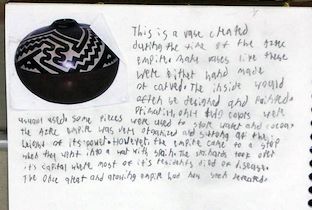 This is a vase created
during the time of the Aztec
empire. Many vases like these
were either hand made
or carved. The inside would
often be designed and painted.
Primarily, only colors were
used. Some pieces were used to store water and cocoa.
the Aztec empire was very organized and strong at the
height of its power. However, the empire came to a stop
when they went into a war with Spain. The Spaniards took over
it's capital where most of it's residents died of disease.
The once great and growing empire had now been